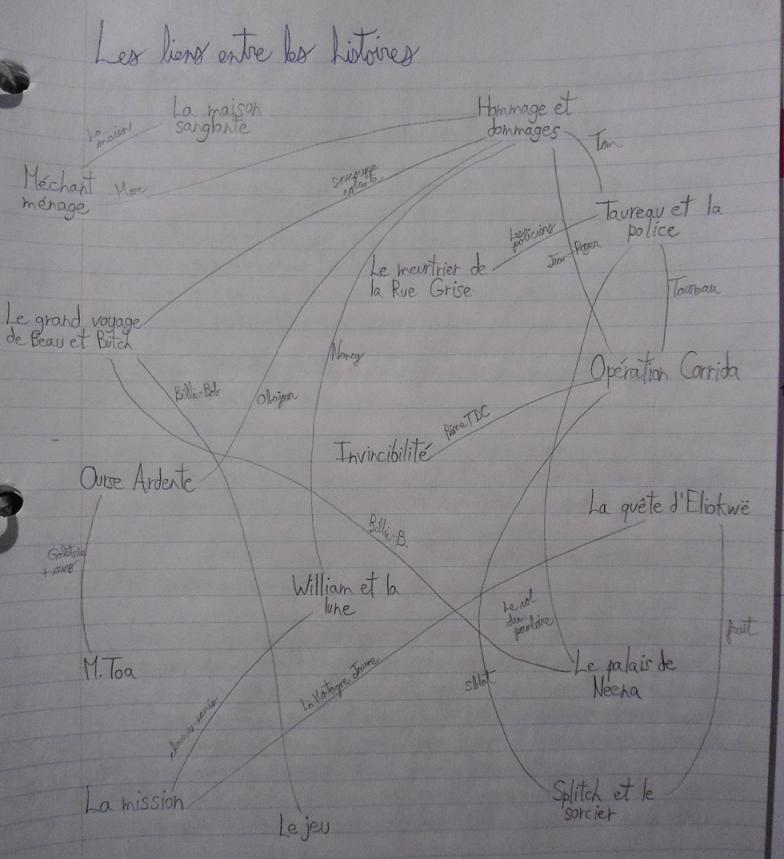 Les liens entre les histoires
La maison
sanglante
Hommage et
dommages
La
maison
Tom
Méchant
ménage
Marc
soucoupe
volante
Taureau et la
police
Les
policiers
Jean-Roger
Le meurtrier de
la Rue Grise
Taureau
Le grand voyage
de Beau et Butch
Nancy
Opération Corrida
Billie-Bob
Invincibilité
Ourse Ardente
La quête d'Eliokwë
Billie-B.
+ ours
William et la
lune
Le vol
du
fruit
M. Toa
La Montagne Jaune
Le palais de
Neena
La mission
Splitch et le
sorcier
Le jeu